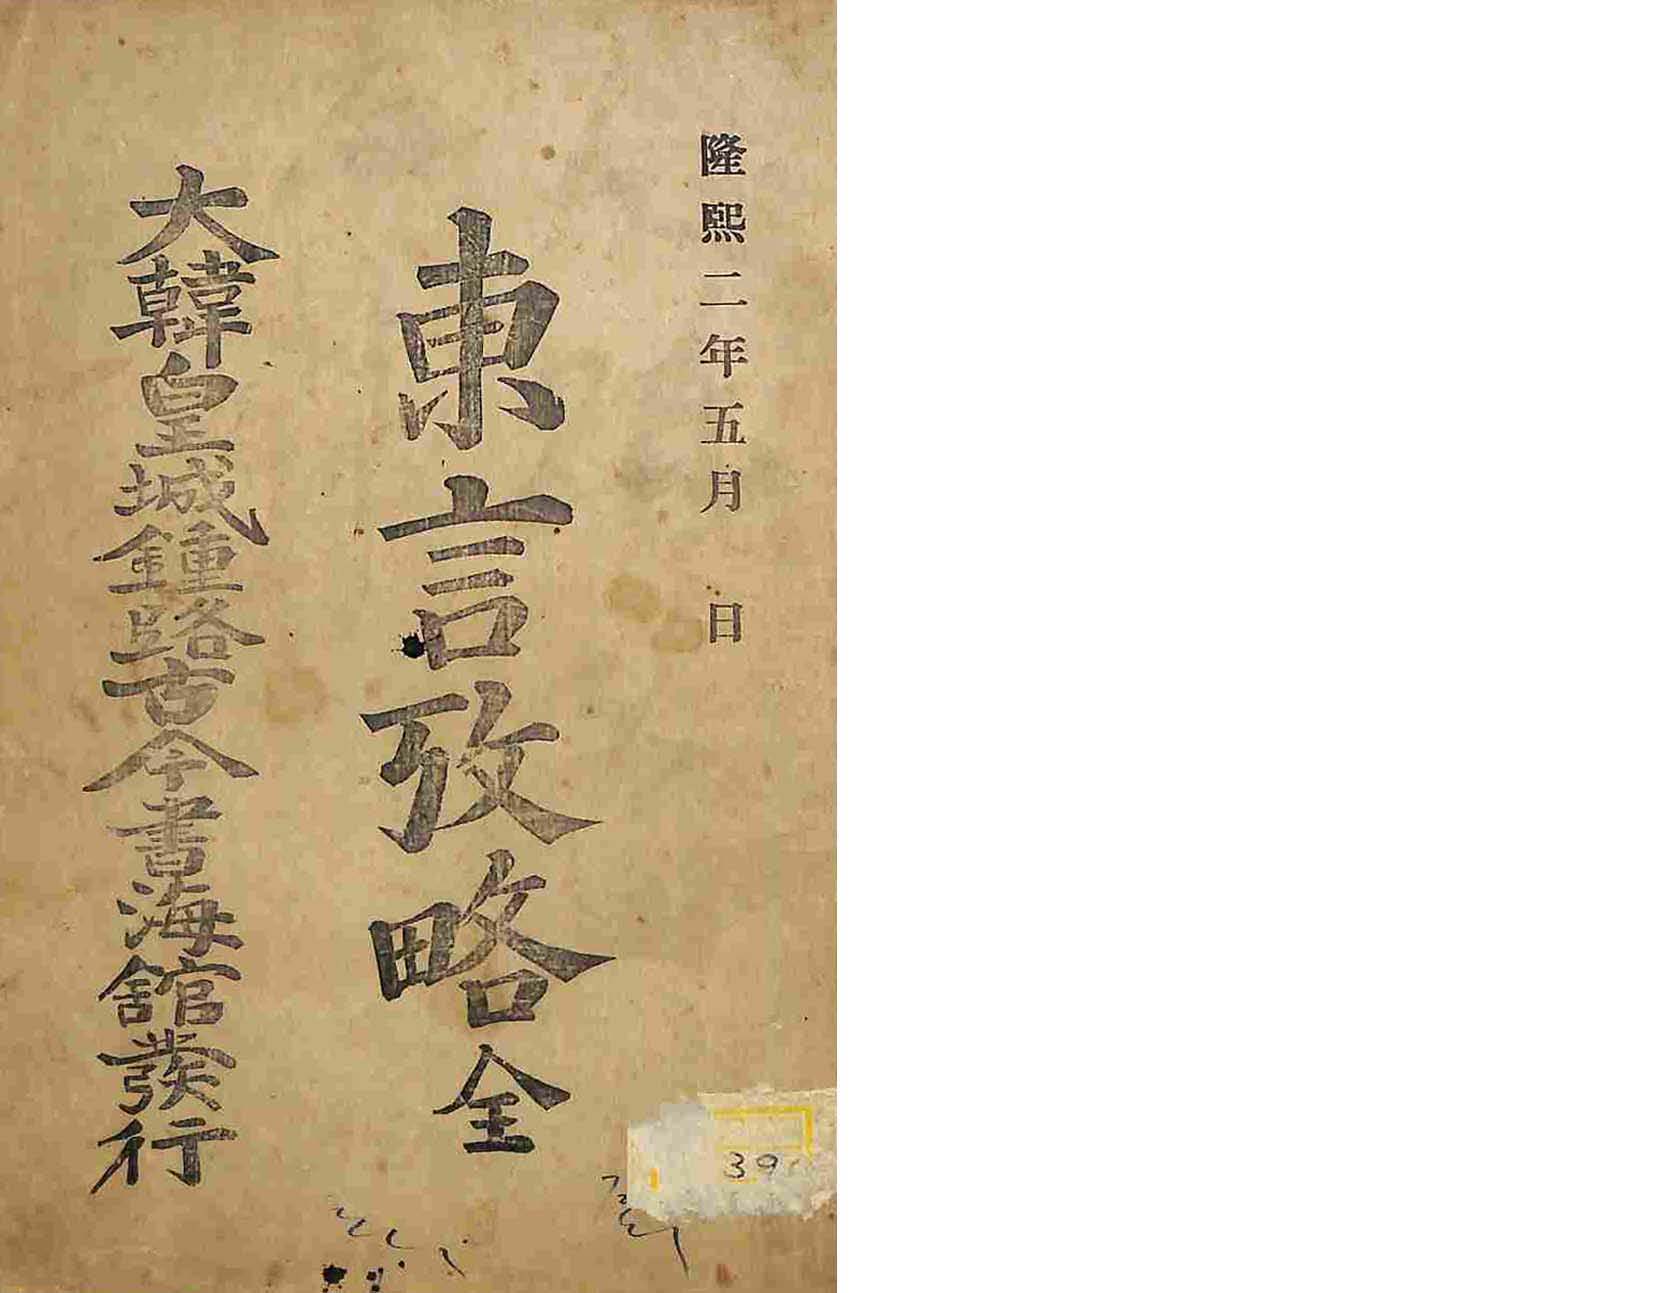 隆熙二年五月 日
東言攷略全
大韓皇城鍾路古今書海館發行
39